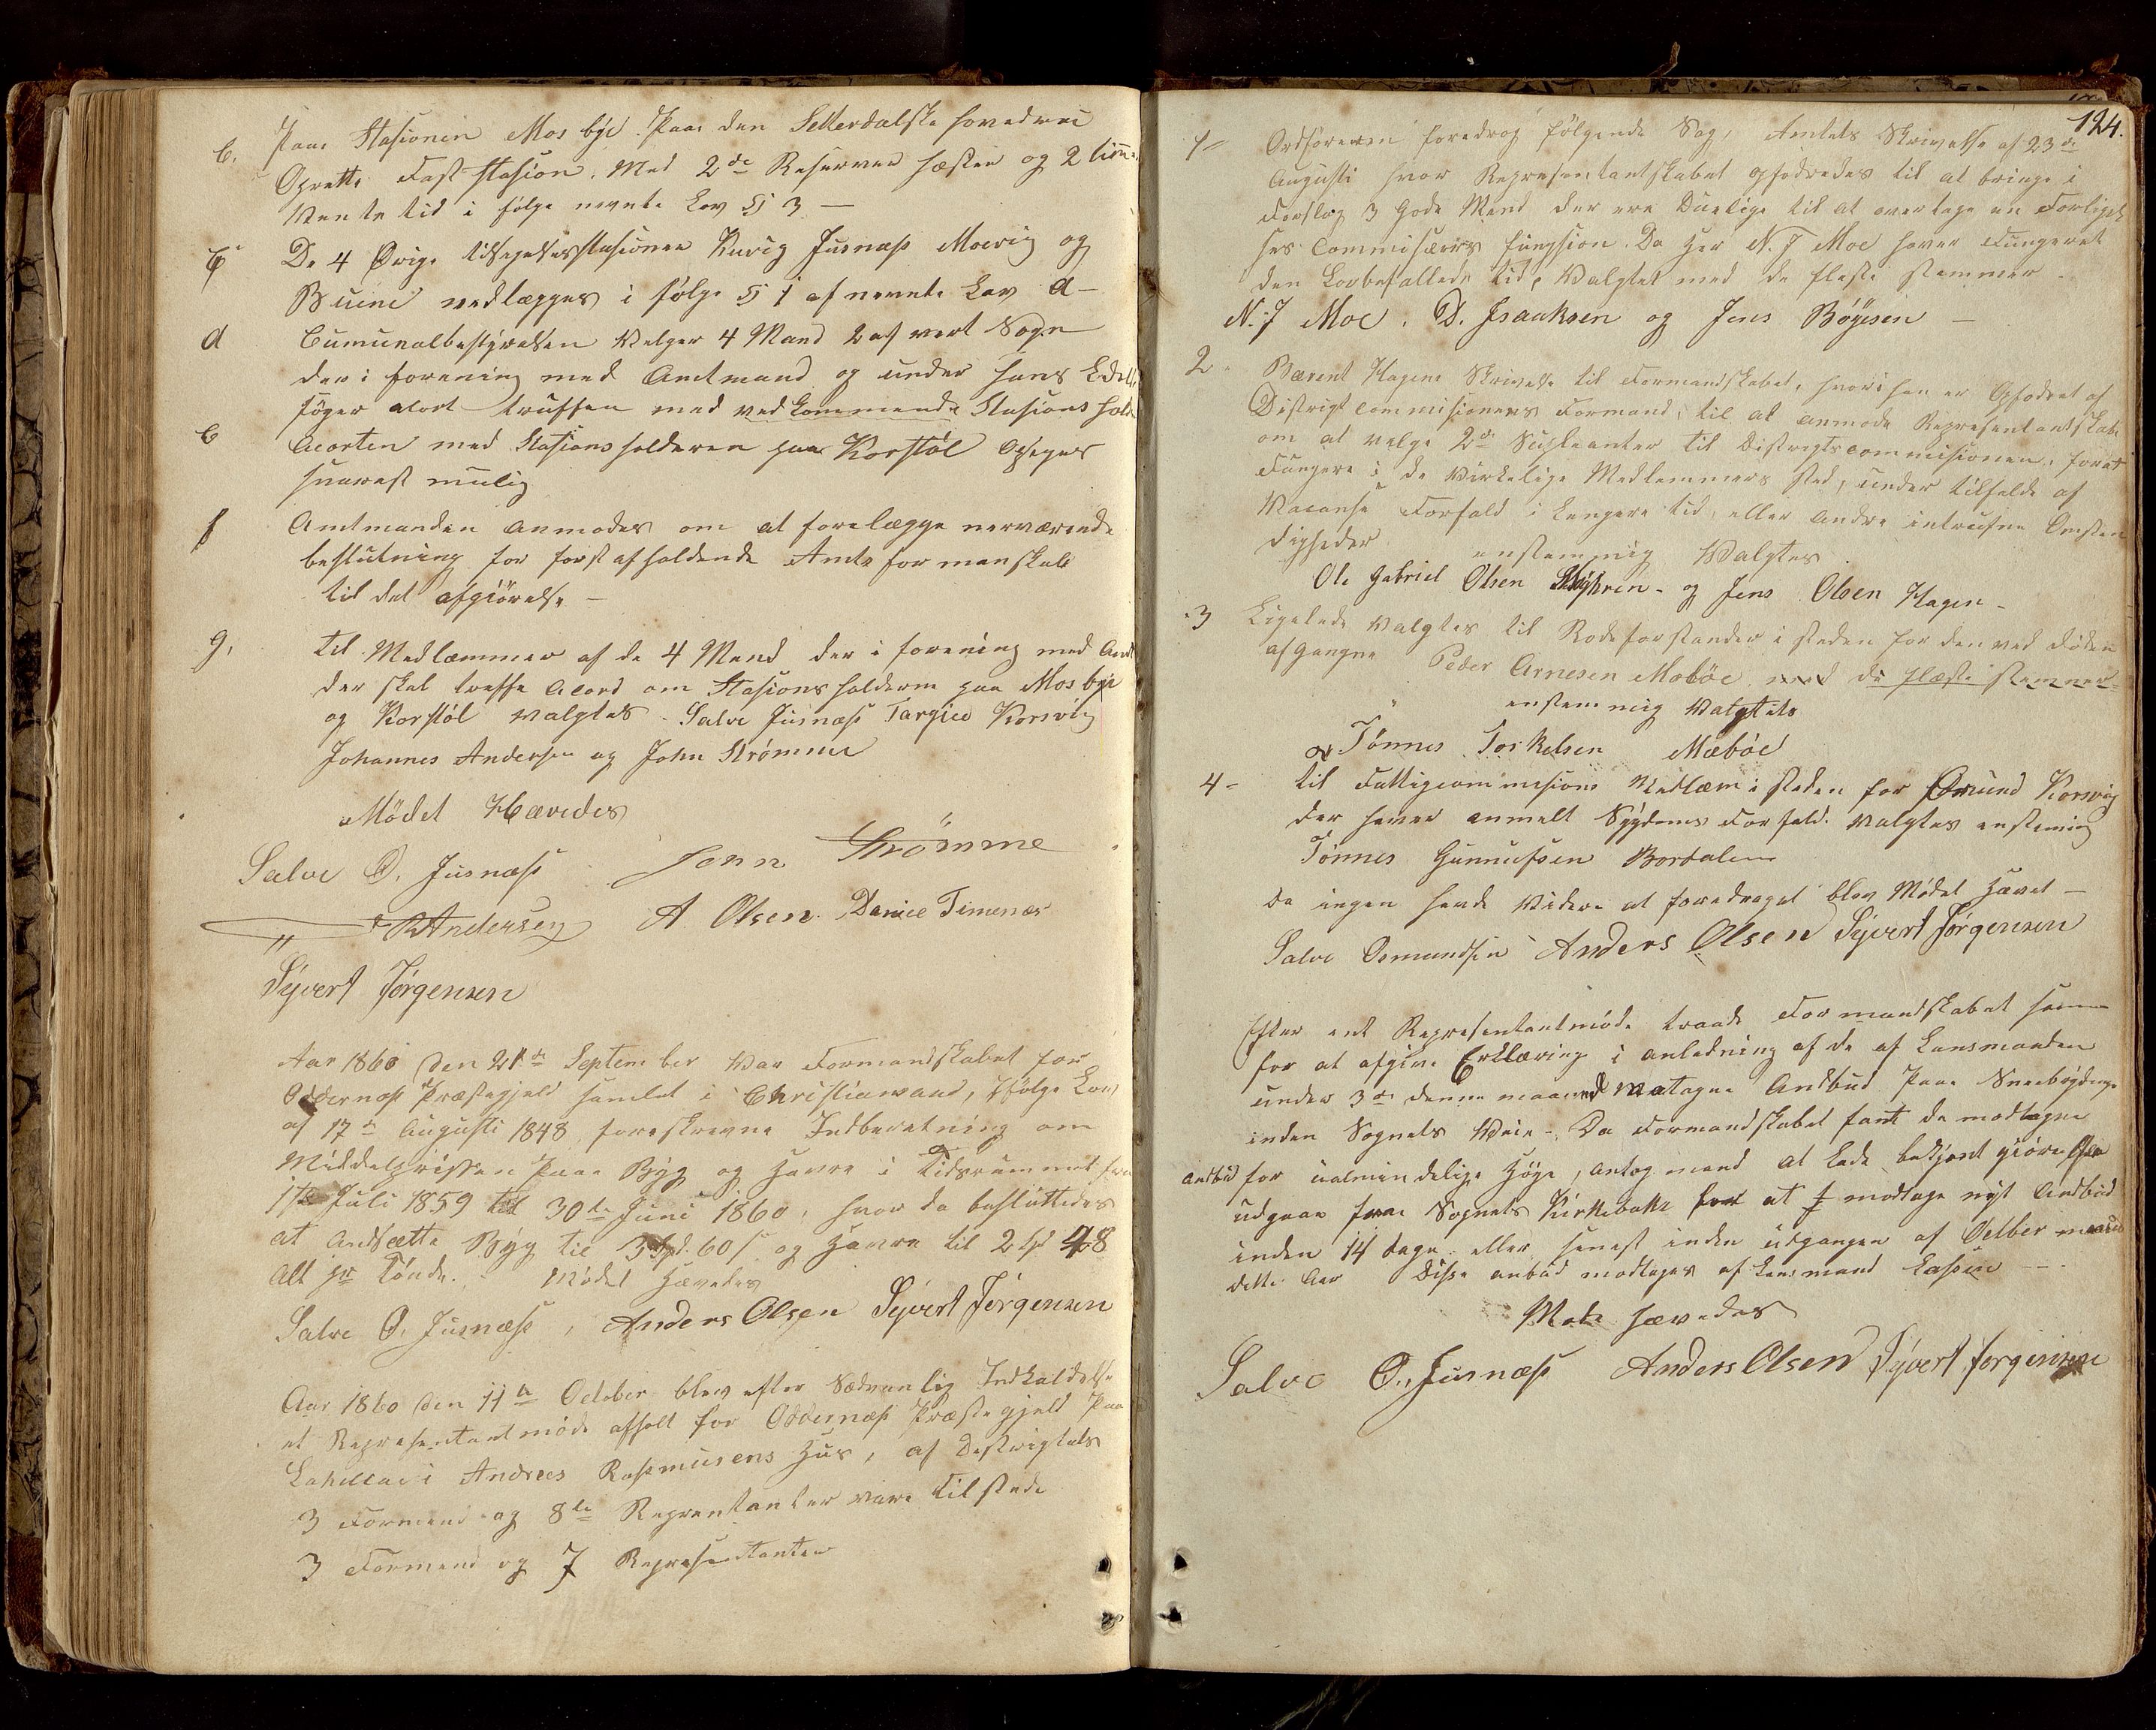 b. Paa Stasionen Mosbye. Paa den Setterdalske hovedvei
Oprette Fast Stasion. Med 2de Reserver hæster og 2 times
Vente tid i følge nevnte Lov § 3 —
C De 4 Øvrige tilsigelsesstasioner Kuvig Jusnæs Moevig og
Bueni nedlægges i følge § 1 af nevnte Lov a —
d Cumunalbestyrelsen Velger 4 Mand 2 af vert Sogn
der i forening med Amtmand og under hans Ledelse
søger acort truffen med vedkommende Stasions hold
e Acorten med Stasionsholderen paa Korstøl Opsiges
snarest mulig
f Amtmanden anmodes om at forelægge nerværende
beslutning for først afholdende Amts formanskab
til det afgiørelse —
g. til Medlæmmer af de 4 Mend der i forening med Amt
der skal treffe Acord om Stasionsholderne paa Mosbye
og Korstøl valgtes. Salve Jusnæs Targier Korsvig
Johannes Andersen og John Strømme
Mødet Hævedes
Salve O. Jusnæs John Strømme
Andersen A. Olsen Daniel Timenes
Syvert Jørgensen
Aar 1860 den 21de September Var Formandskabet for
Oddernæs Præstegjeld samlet i Christiansand, Ifølge Lov
af 17de Augusti 1848, foreskrevne Indberetning om
Middelprissen Paa Byg og Havre i Tidsrummet fra
1ste Juli 1859 til 30te Juni 1860, hvor da besluttedes
at Ansætte Byg til 3 Spd. 60 s og Havre til 2 Spd 48
Alt pr Tønde. Mødet Hævedes
Salve O. Jusnæs, Anders Olsen Syvert Jørgensen
Aar 1860 den 11te October blev efter Sædvanlig Indkaldelse
et Representantmøde afholt for Oddernæs Præstegjeld Paa
Lahellai Andreas Rasmusens Hus, af Destrigtets
3 Formend og 8te Reprentanter vare tilstede
3 Formend og 7 Representanter
124.
1 – Ordføreren foredrog følgende Sag, Amtets Skrivelse af 23de
Augusti hvor Representantskabet opfodredes til at bringe i
Forslag 3 Gode Mend der ere Duelige til at overtage en Forligel
ses Commisærs fungsion. Da Her N. J Moe haver Fungeret
den Lovbefallede tid, Valgtes med de fleste stemmer
N. J Moe. D. Isaaksen og Jens Bøyesen —
2. Bærent Hagens Skrivelse til Formandskabet, hvori han er Opfodret af
Distrigtcommisionens Formand, til at anmode Representantskab
om at velge 2de Supleanter til Distrigtscommisionen, forat
Fungere i de Virkelige Medlemmers sted, under tilfelde af
Vacanse Forfald i lengere tid, eller Andre intrufne Omsten
digheder enstemmig Valgtes
Ole Gabriel Olsen og Jens Olsen Hagen –
3 Ligelede Valgtes til Rodeforstander i steden for den ved døden
afgangne Peder Arnesen Mebøe med de fleste stemmer
enstemmig Valgtets
Tønnes Torkelsen Mæbøe
4 – til Fattigcommisions Medlæm i steden for Omund Korsvig
der haver anmelt Sygdoms Forfald. Valgtes enstemig
Tønnes Gunnufsen Bordalen
Da ingen havde Videre at foredraget blev Mødet Hævet —
Salve Osmundsen Anders Olsen Syvert Jørgensen
Efter ent Representantmøde traade Formandskabet sam
for at afgive Erklæring i anledning af de af Lensmanden
under 3de denne maaned Motagne Anbud Paa Sneebrydninge
inden Sognets Veie –. Da Formandskabet fant de modtagne
Anbud for ualmindelige Høye, antog mand at lade bekjent giøre
udgaae fraa Sognets Kirkebake for at modtage nyt Anbud
inden 14 dage eller senest inden udgangen af Octber maaned
dette Aar Disse anbud modtages af Lensmand
Møte hævedes
Salve O. Jusnæs Anders Olsen Syvert Jørgensen